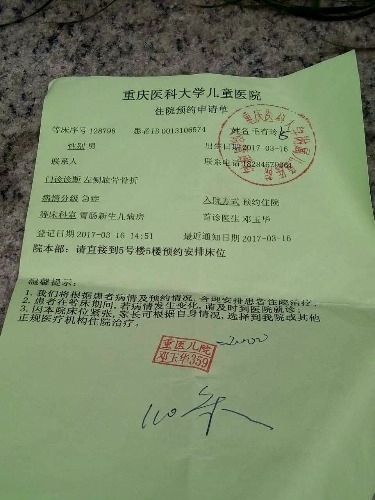 重庆医科大学儿童医院
住院预约申请单
等床序号 128798 患者ID 0013106574 姓名 王有玲
性别 男 出生日期 2017-03-16
联系人 联系电话
门诊诊断 左侧肱骨骨折
病情分级 急症 入院方式 预约住院
等床科室 胃肠新生儿病房 首诊医生 邓玉华
登记日期 2017-03-16 14:51 最近通知日期 2017-03-16
院本部: 请直接到5号楼5楼预约安排床位
温馨提示:
1. 我们将根据患者病情及预约情况, 合理安排患者住院治疗.
2. 患者在等床期间, 若病情发生变化, 请及时到医院就诊;
3. 因本院床位紧张, 家长可根据自身情况, 选择到我院或其他
正规医疗机构住院治疗.
重医儿院
邓玉华359